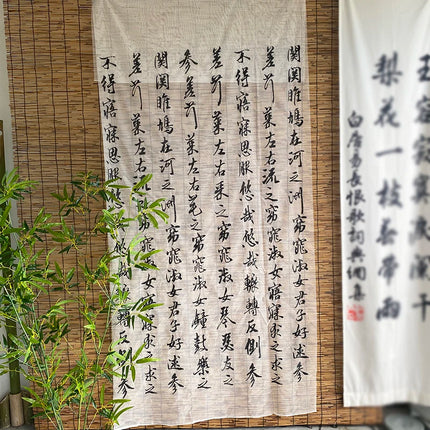 關關雎鳩在河之洲窈窕淑女君子好逑參
差荇菜左右流之窈窕淑女寤寐求之求之
不得寤寐思服悠哉悠哉輾轉反側參
差荇菜左右采之窈窕淑女琴瑟友之
參差荇菜左右芼之窈窕淑女鐘鼓樂之
關關雎鳩在河之洲窈窕淑女君子好逑參
差荇菜左右之窈窕淑女寤寐求之求之
不得寤寐思服悠哉悠哉轉反側參
玉容寂寞淚闌干
梨花一枝春帶雨
白居易長恨歌詞